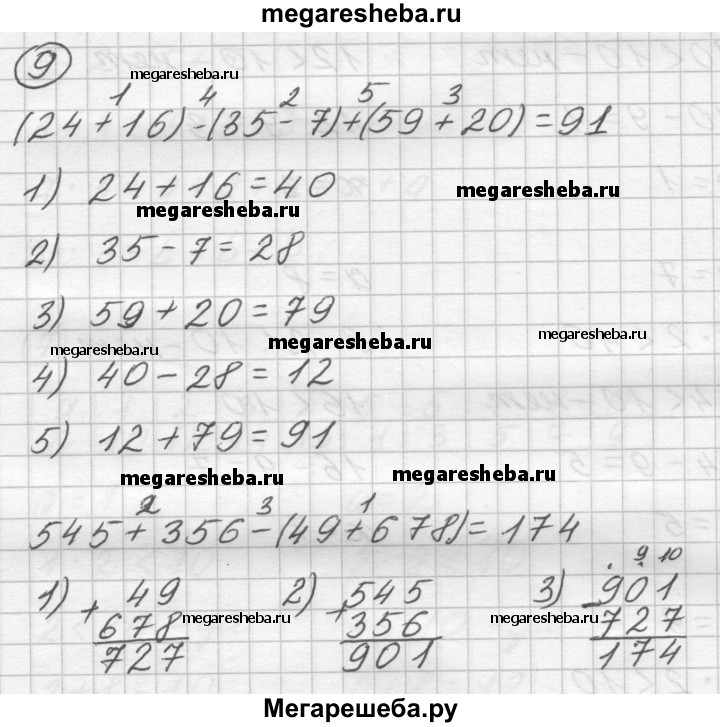 megaresheba.ru
9
megaresheba.ru
1 4 2 5 3
(24+16)-(35-7)+(59+20)=91
1) 24+16=40
megaresheba.ru
megaresheba.ru
2) 35-7=28
3) 59+20=79
megaresheba.ru
megaresheba.ru
megaresheba.ru
4) 40-28=12
5) 12+79=91
megaresheba.ru
megaresheba.ru
2 3 1
545+356-(49+678)=174
9 10
1) 49 2) 545 3) 901
+ + -
678 356 727
megaresheba.ru
megaresheba.ru
727 901 174
Мегарешеба.ру